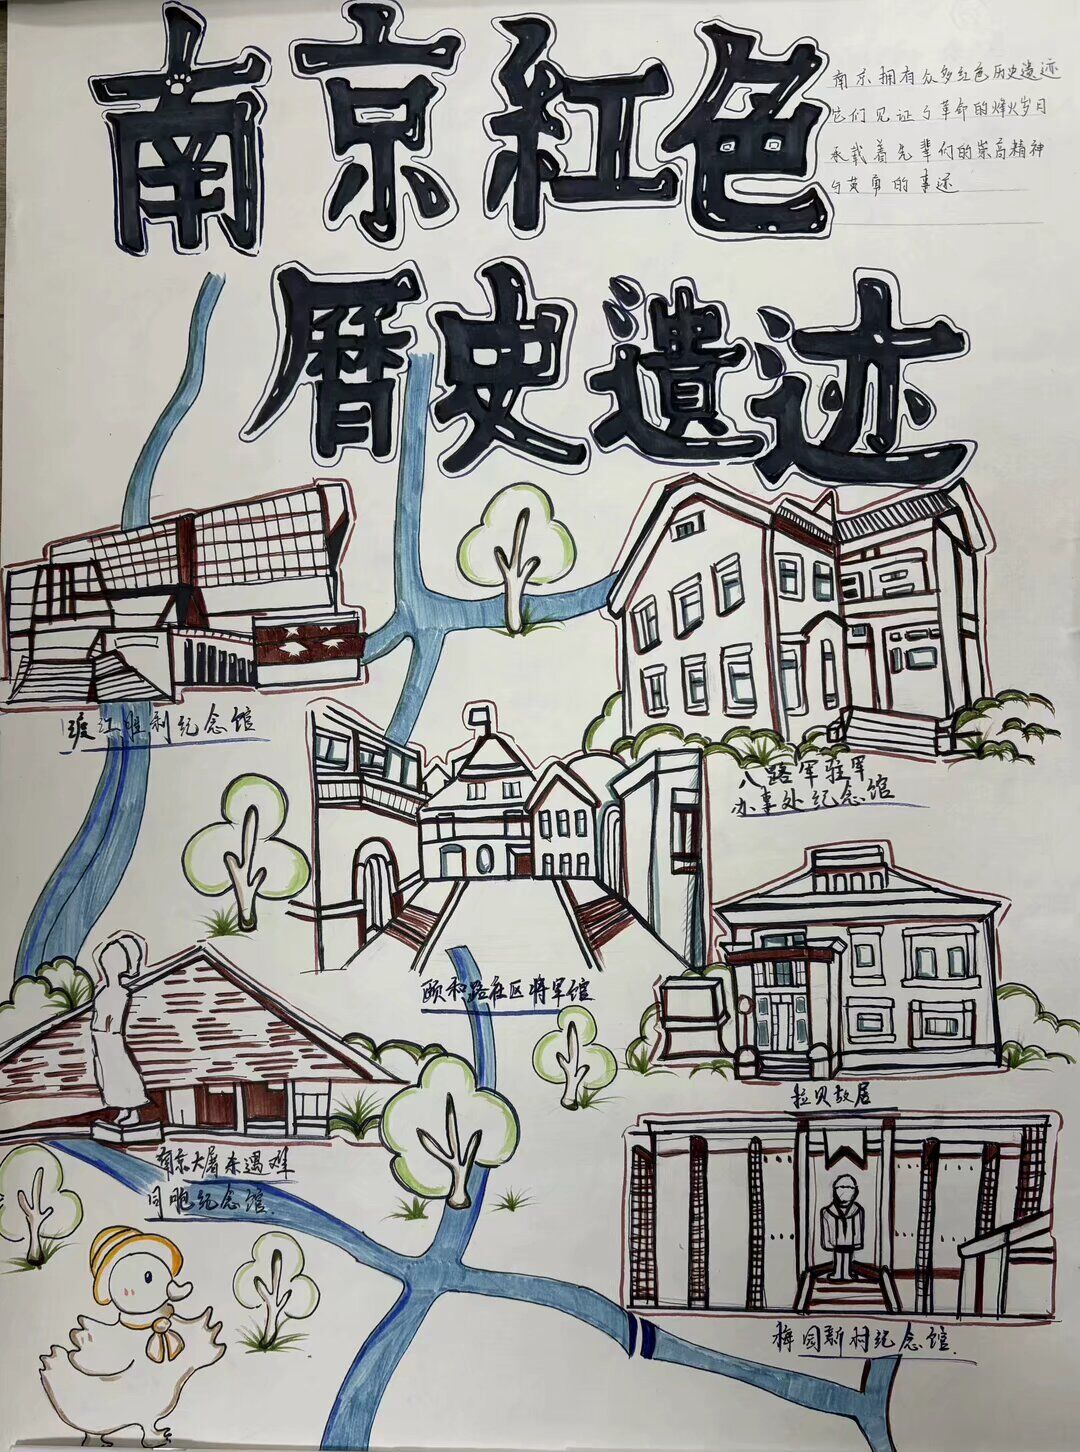 南京紅色
曆史遺迹
南京拥有众多红色历史遗迹
它们见证了革命的烽火岁月
承载着先辈们的崇高精神
与英勇的事迹
渡江胜利纪念馆
八路军驻军
办事处纪念馆
颐和路社区将军馆
拉贝故居
南京大屠杀遇难
同胞纪念馆.
梅园新村纪念馆.